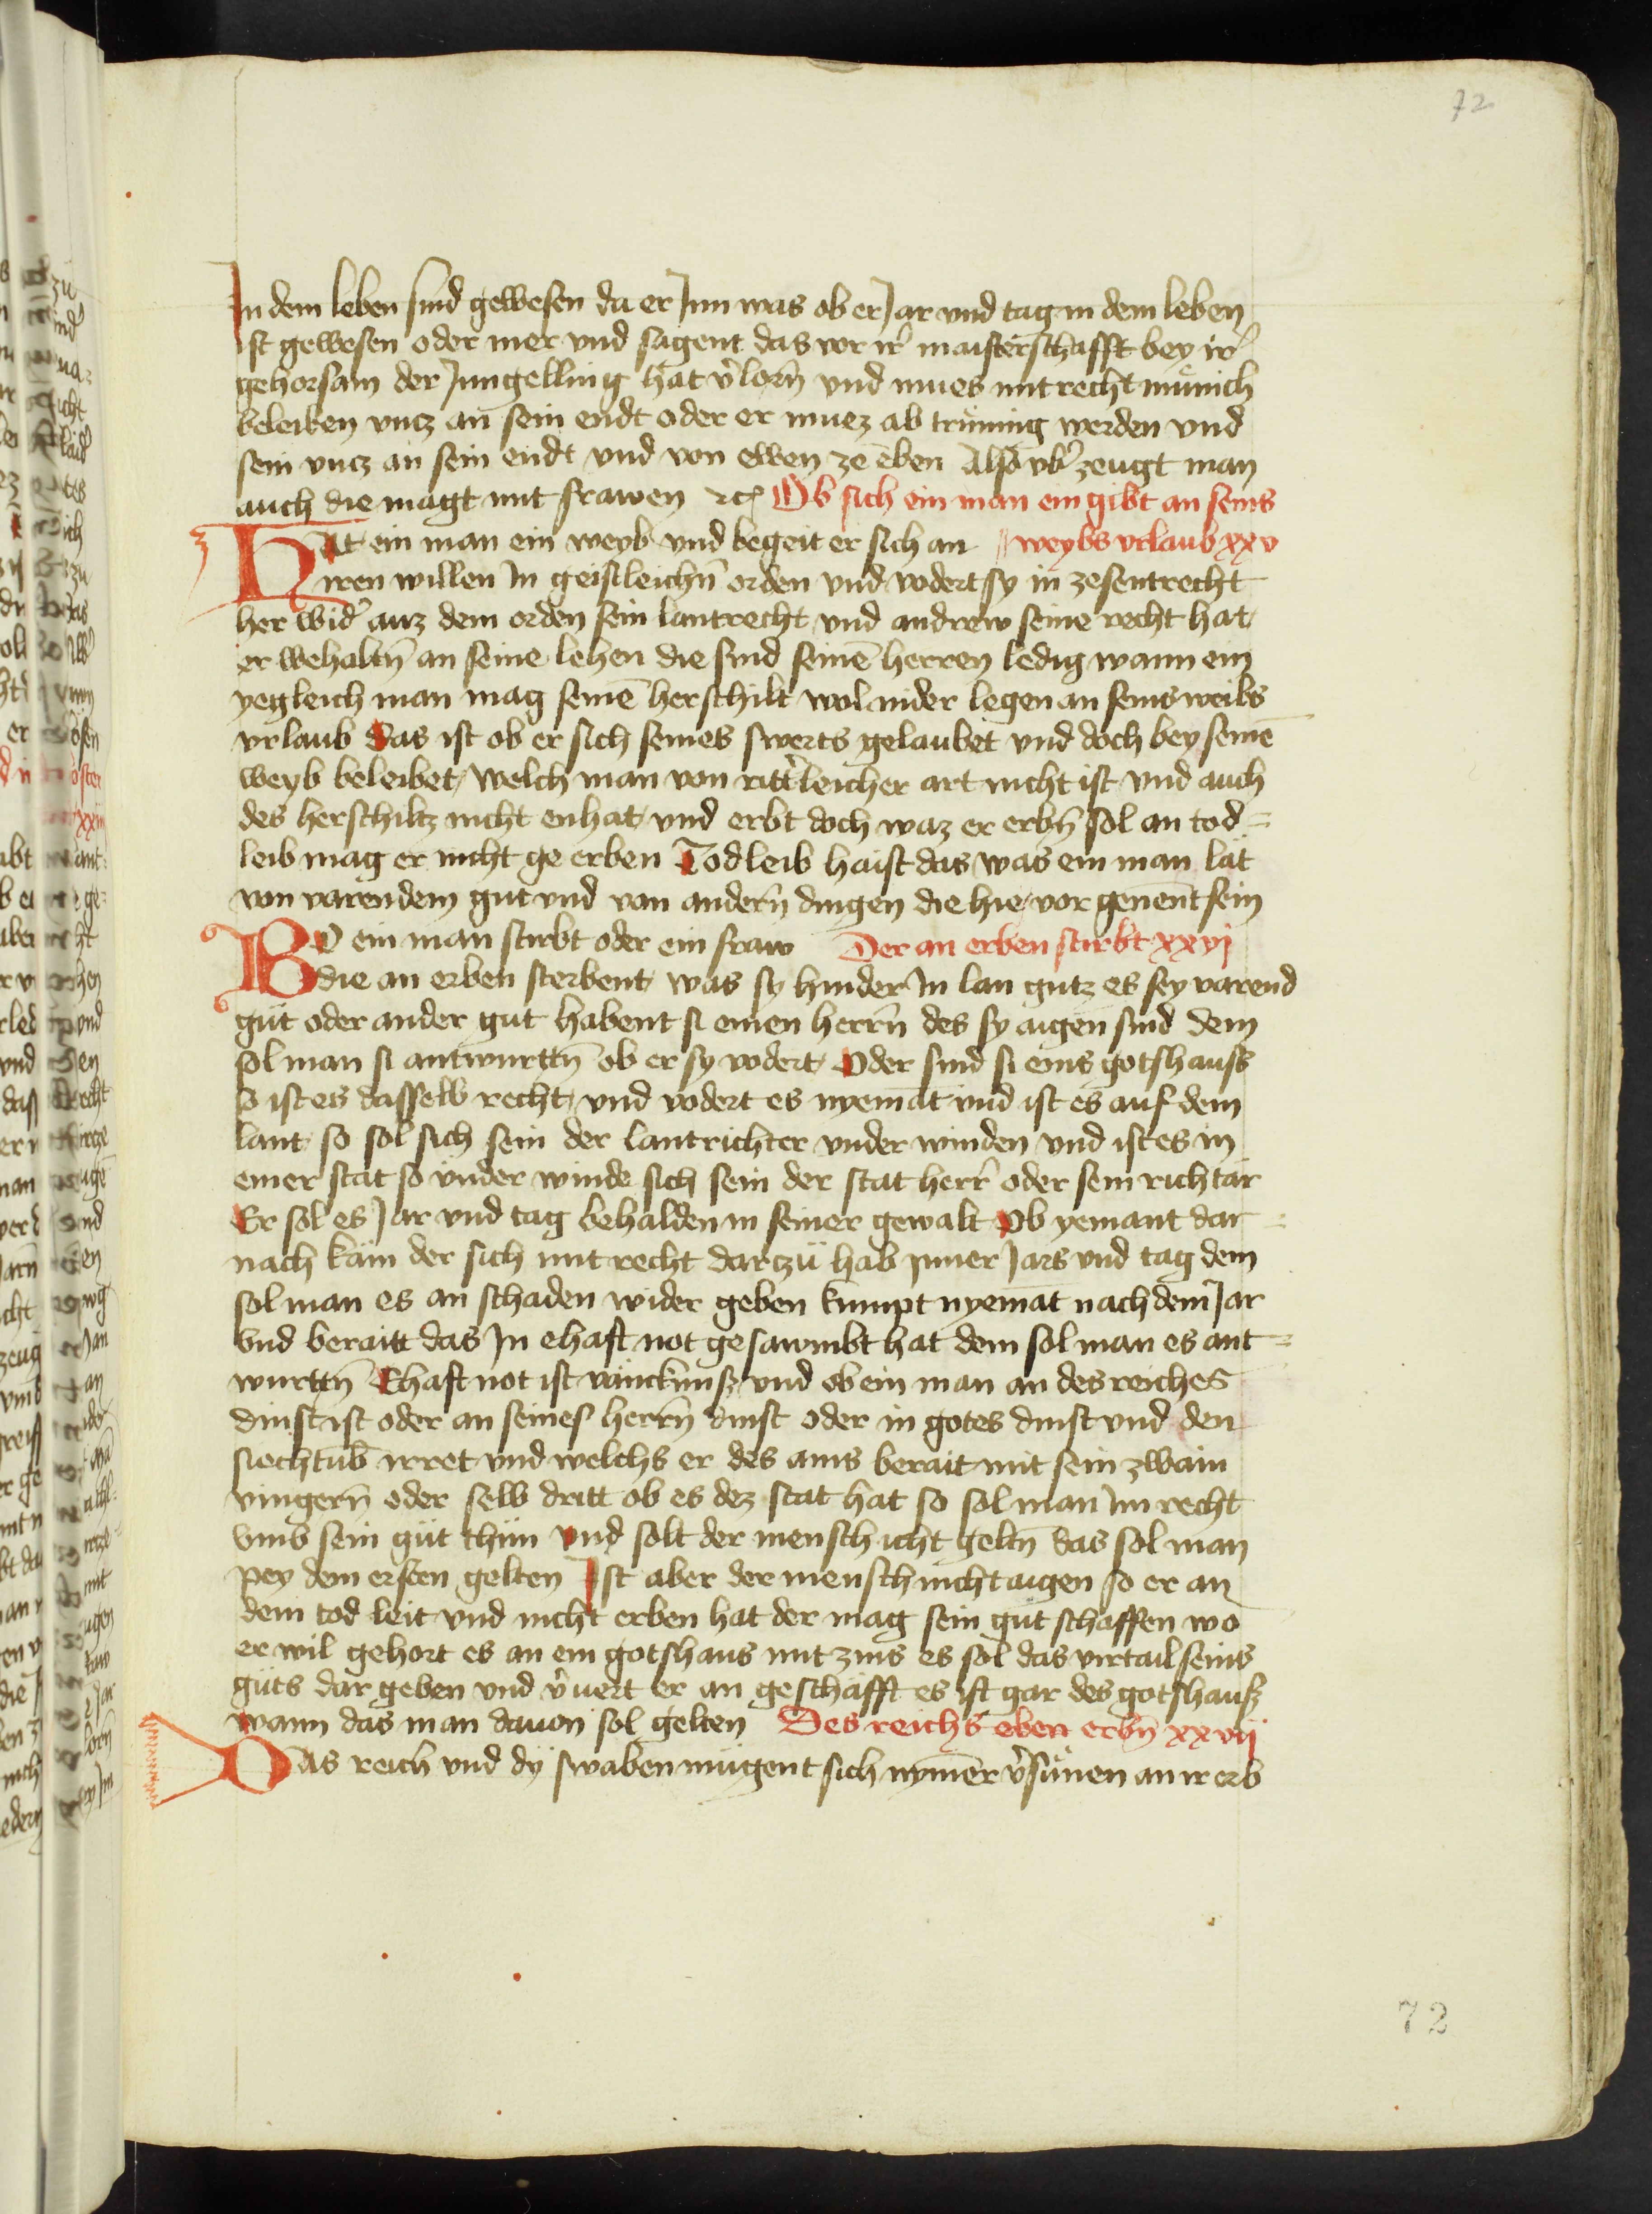 72
In dem leben sind gewesen da er Jnn was ob er Jar vnd tag in dem leben
ist gewesen oder mer vnd sagent das vor ir maisterschafft bey ir
gehorsam der Jungelling hat v͛lorn̄ vnd mues mit recht munich
beleiben vncz an sein endt oder er muez ab trünnig werden vnd
sein vncz an sein endt vnd von ewen ze eben Also vb͛ zeugt man
auch die magt mit frawen ⁊c̄ Ob sich ein man ein gibt an seins
Hat ein man ein weyb vnd begeit er sich an weybs vrlaub xxv
iren willen Jn geistleichn̄ orden vnd vodert sy in ze sentrecht
her wid͛ auz dem orden sein lantrecht vnd andrew seine recht hat
er wehaltn̄ an seine lehen die sind seinē herren ledig wann ein
yegleich man mag seinē herschilt wol nider legen an seins weibs
vrlaub Das ist ob er sich seines swerts gelaubet vnd doch bey seinē
weyb beleibet welch man von ritt͛leicher art nicht ist vnd auch
des herschiltz nicht enhat vnd erbt doch waz er erbn̄ sol an tod=
leib mag er nicht ge erben Todleib haist das was ein man lat
von varendem gut vnd von andern̄ dingen die hie vor genēnt sein
Wo ein man stirbt oder ein fraw Der an erben stirbt xxvj
die an erben sterbent was sy hinder Jn lan gutz es sey varend
gut oder ander gut habent si einen herrn̄ des sy aigen sind dem
sol man si antwurttn̄ ob er sy vodert Oder sind si eins gotshauss
so ist es dasselb recht vnd vodert es nyemāt vnd ist es auf dem
lant so sol sich sein der lantrichter vnder winden vnd ist es in
einer stat so vnder winde sich sein der stat herr oder sein richtär
Er sol es Jar vnd tag behalden in seiner gewalt Ob yemant dar=
nach käm der sich mit recht darczü hab Jnner Jars vnd tag dem
sol man es an schaden wider geben kumpt nyemāt nach dem Jar
vnd beraitt das Jn ehaft not gesawmbt hat dem sol man es ant=
wurttn̄ Ehaft not ist vänckunsz vnd ob ein man an des reiches
dinst ist oder an seines herrn̄ dinst oder in gotes dinst vnd den
siechtūb irret vnd welchs er des ains berait mit sein zwain
vingern̄ oder selb dritt ob es dez stat hat so sol man Jm recht
vmb sein güt thün vnd solt der mensch icht geltn̄ das sol man
pey dem ersten gelten Ist aber der mensch nicht aigen so er an
dem tod leit vnd nicht erben hat der mag sein gut schaffen wo
er wil gehort es an ein gotshaus mit zins es sol das virtail seins
güts dar geben vnd v͛uert er an geschäfft es ist gar des gotshausz
wann das man dauon sol gelten Des reichs eben erbn̄ xxvij
Das reich vnd dÿ swaben mügent sich nymēr v͛sümen an ir erb
72